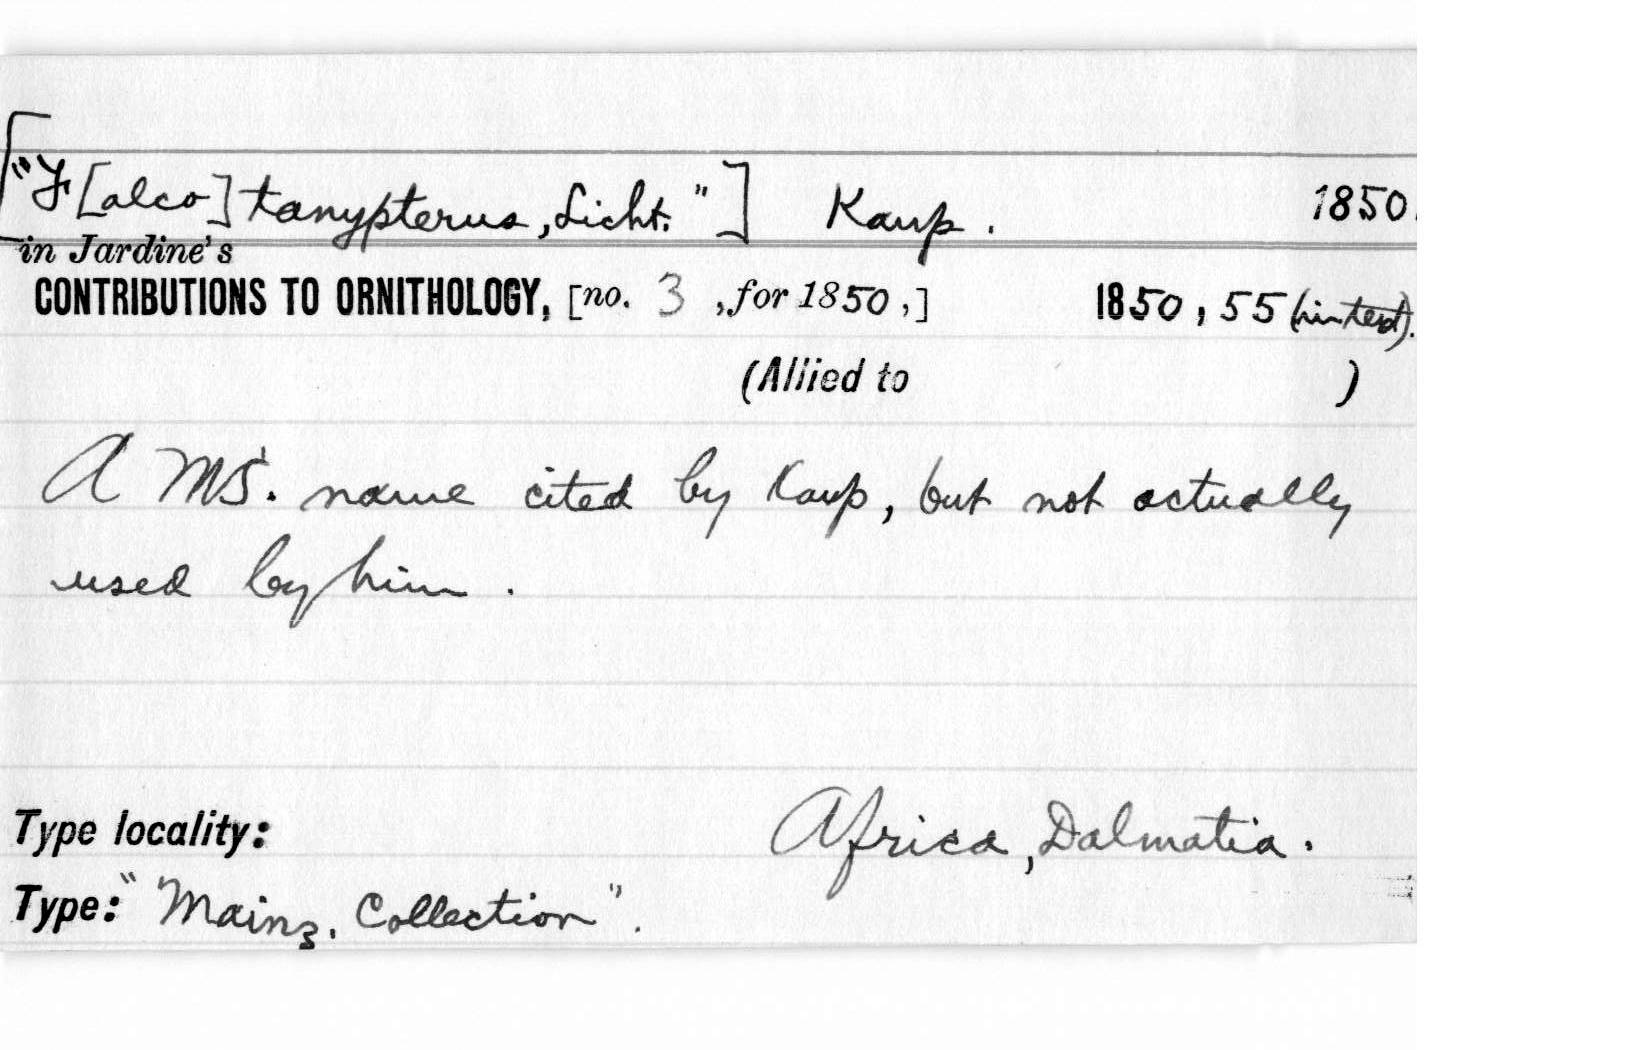 ["F[alco] tanypterus, Licht."] Kaup. 1850.
in Jardine's
CONTRIBUTIONS TO ORNITHOLOGY, [no. 3, for 1850,] 1850, 55 (in text).
(Allied to )
A MS. name cited by Kaup, but not actually
used by him.
Type locality: Africa, Dalmatia.
Type: "Mainz. Collection".